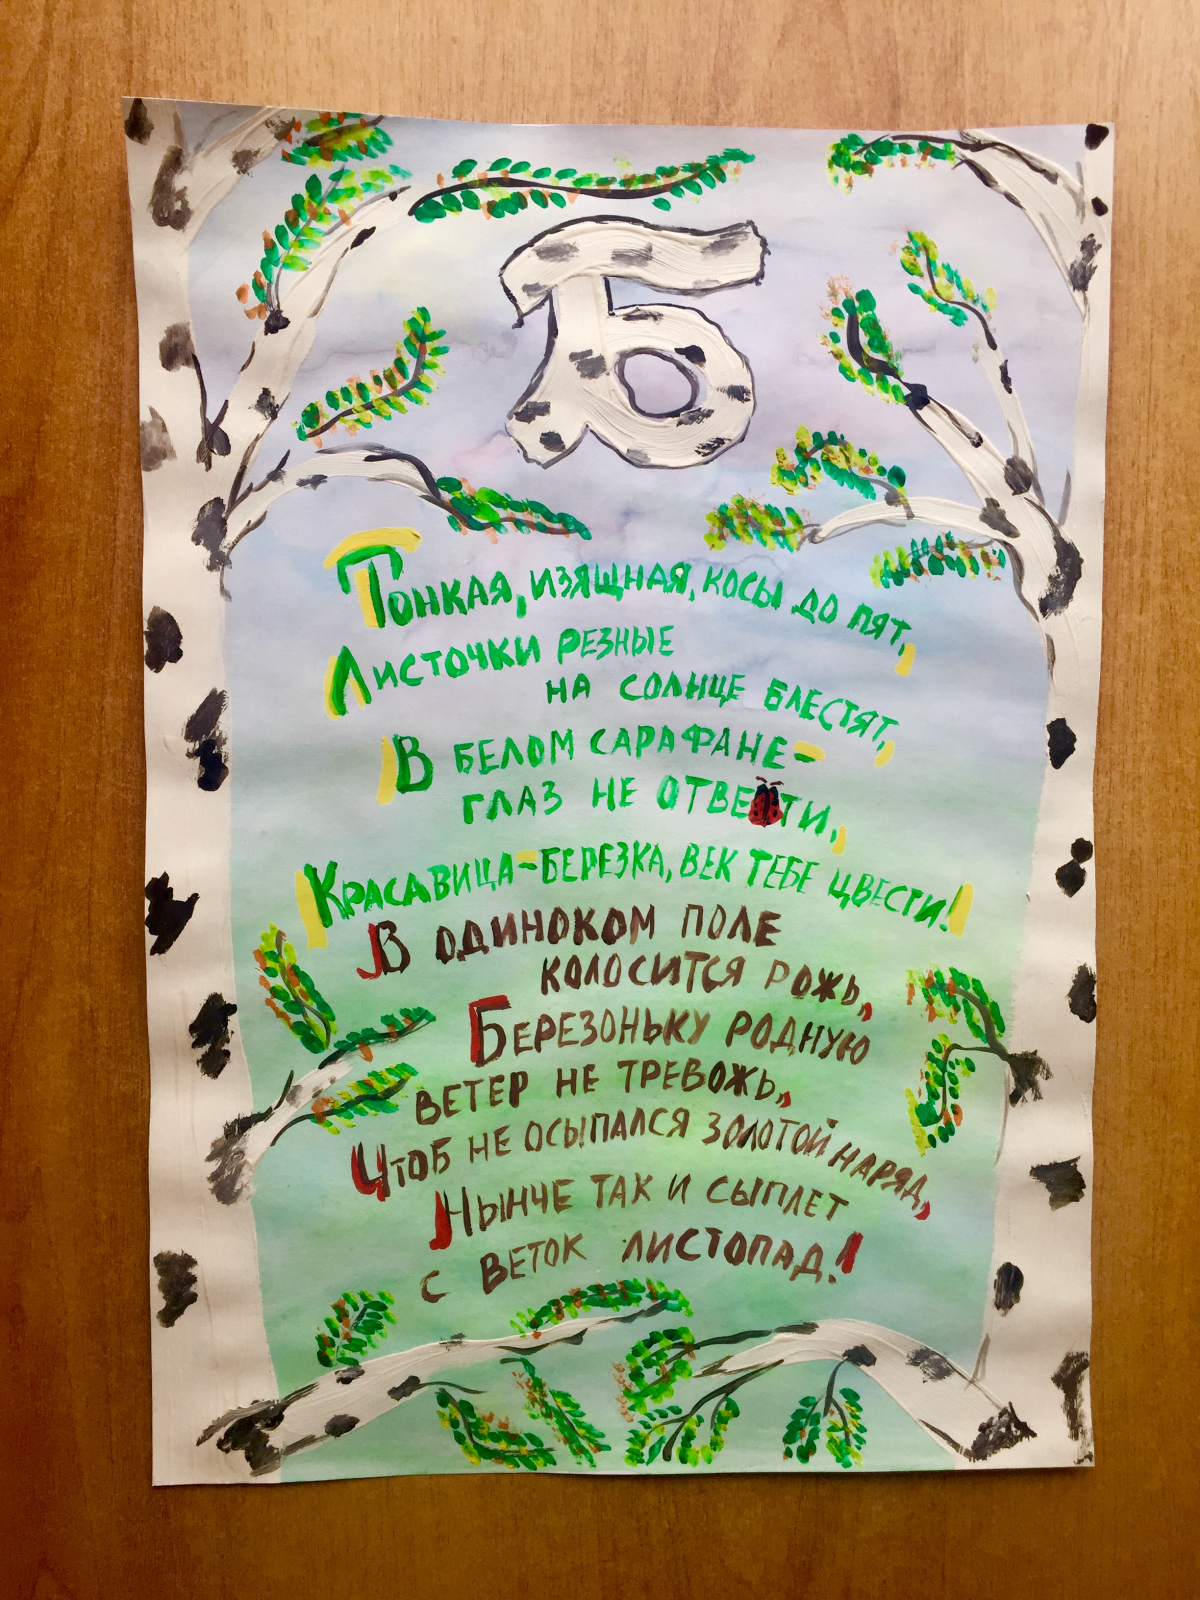 Б
Тонкая, изящная, косы до пят,
Листочки резные
на солнце блестят,
В белом сарафане-
глаз не отвести,
Красавица-березка, век тебе цвести!
В одиноком поле
колосится рожь,
Березоньку родную
ветер не тревожь,
Чтоб не осыпался золотой наряд,
Нынче так и сыплет
с веток листопад!